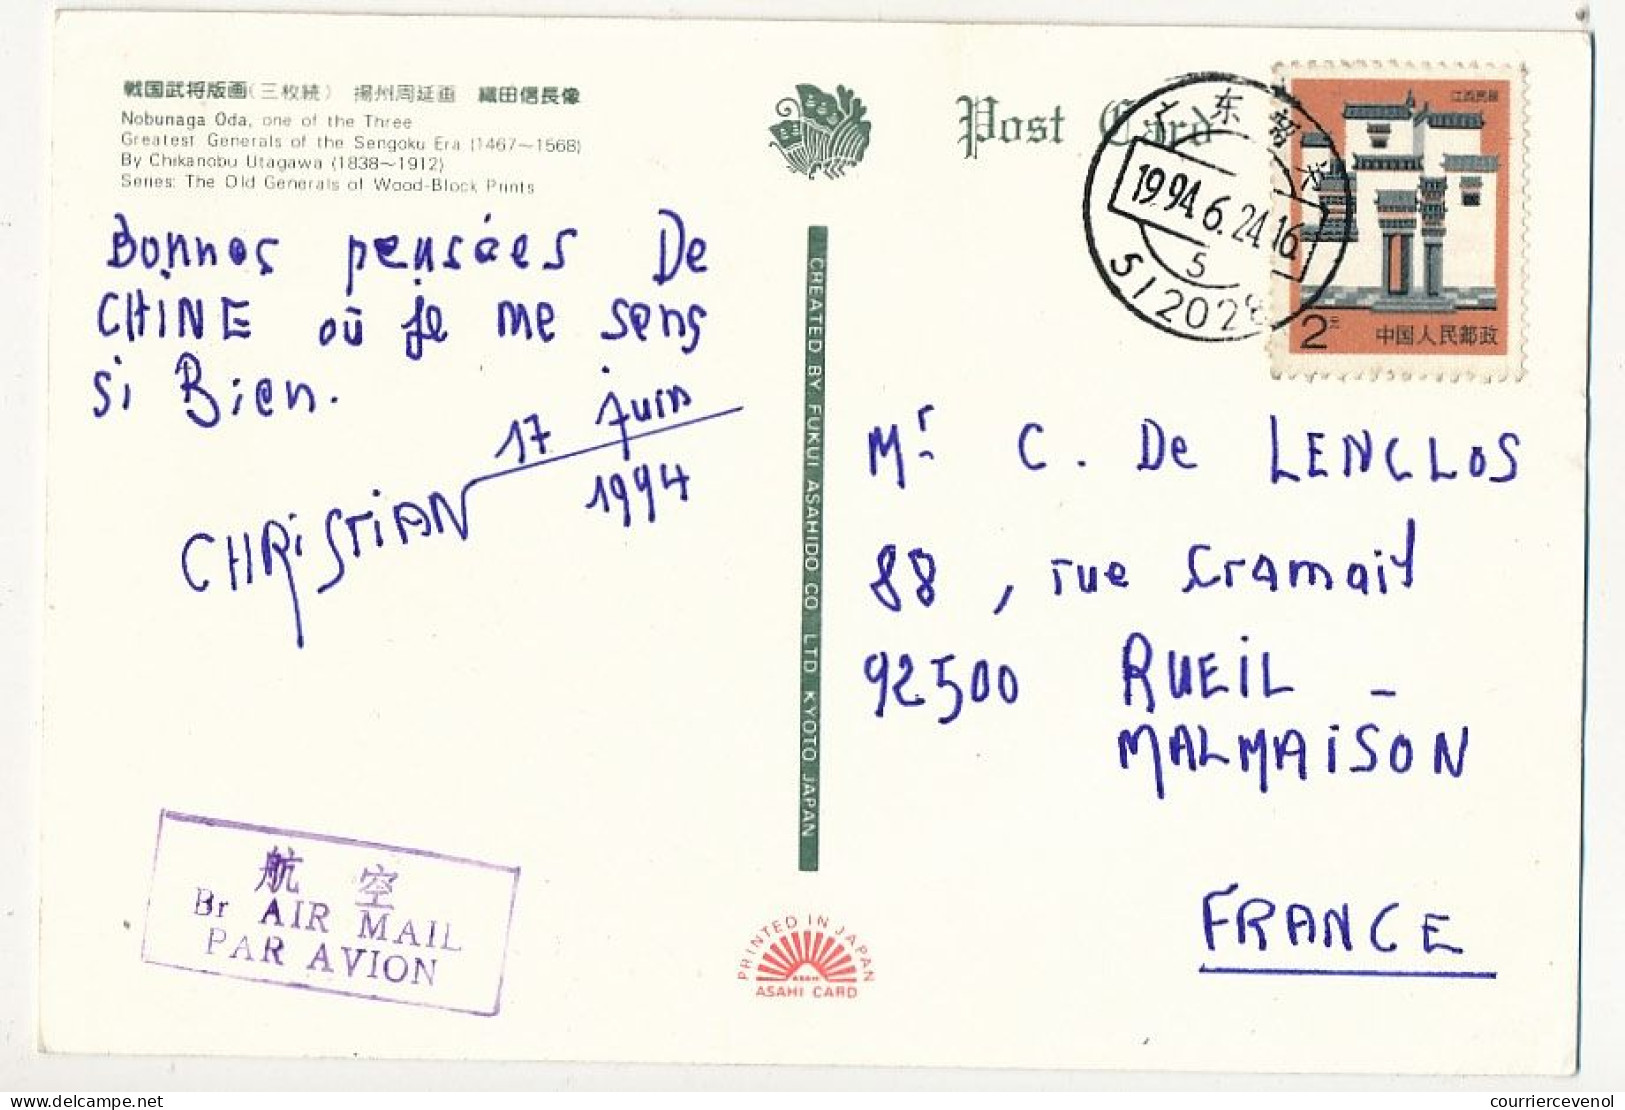 戦国武将版画(三枚続) 揚州周延画 織田信長像
Nobunaga Oda, one of the Three
Greatest Generals of the Sengoku Era (1467~1568)
By Chikanobu Utagawa (1838~1912)
Series: The Old Generals of Wood-Block Prints
Bonnes pensées De
CHINE où Je me sens
si Bien.
17 Juin
1994
CHRiSTiAN
航 空
By AIR MAIL
PAR AVION
CREATED BY FUKUI ASAHIDO CO. LTD KYOTO JAPAN
PRINTED IN JAPAN
ASAHI
ASAHI CARD
Post Card
广东
1994.6.24.16
5
512028
江西民居
2元
中国人民邮政
Mr C. De LENCLOS
88, rue Cramail
92500 RUEIL -
MALMAiSON
FRANCE
couriercevenol